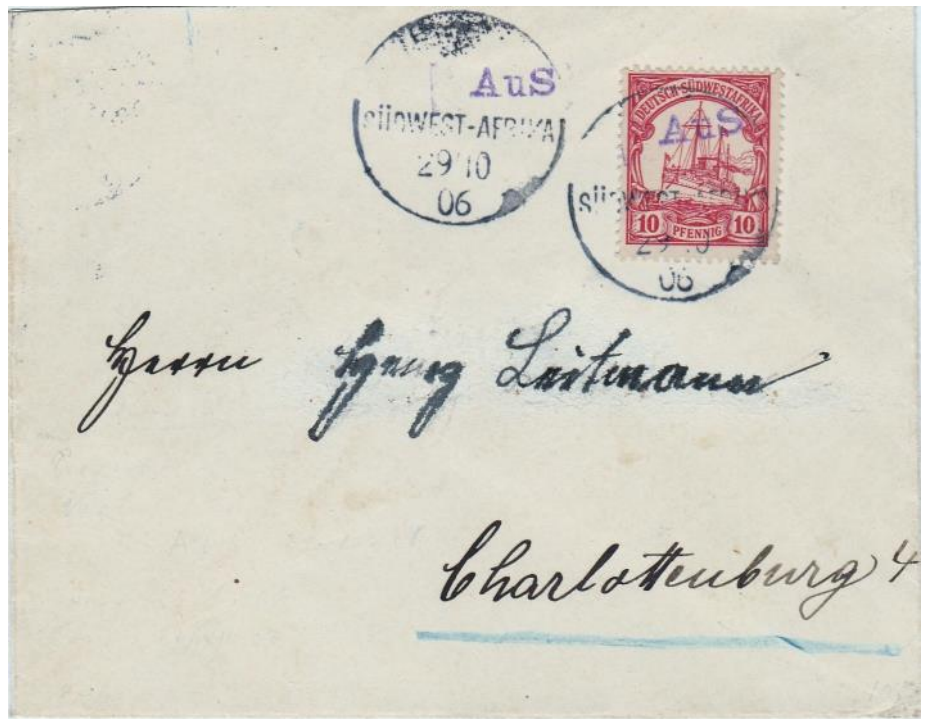 AuS
SÜDWEST-AFRIKA
29 10
06
DEUTSCH-SÜDWESTAFRIKA
AuS
SÜDWEST-AFRIKA
10 PFENNIG 10
29 10
06
Herrn Leitmann
Charlottenburg 4